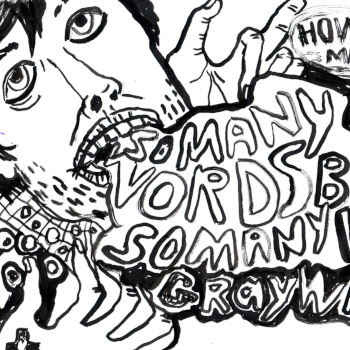 HOW
M
SO MANY
VORDS B
SO MANY
GRAYW